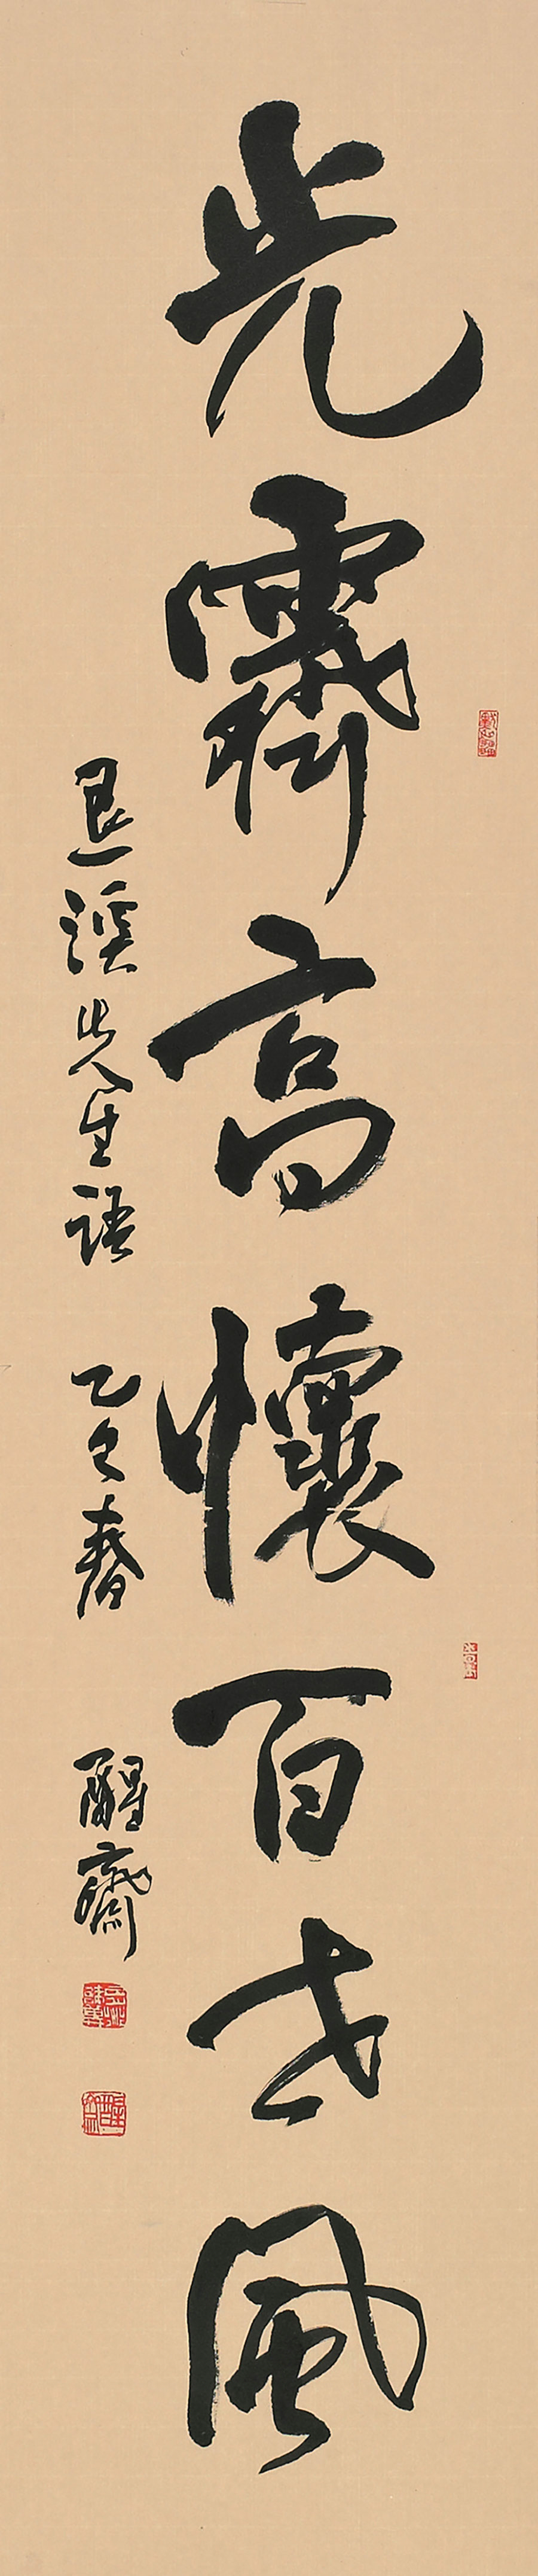 光霽高懷百世風
退溪先生語 乙巳春 醒齋